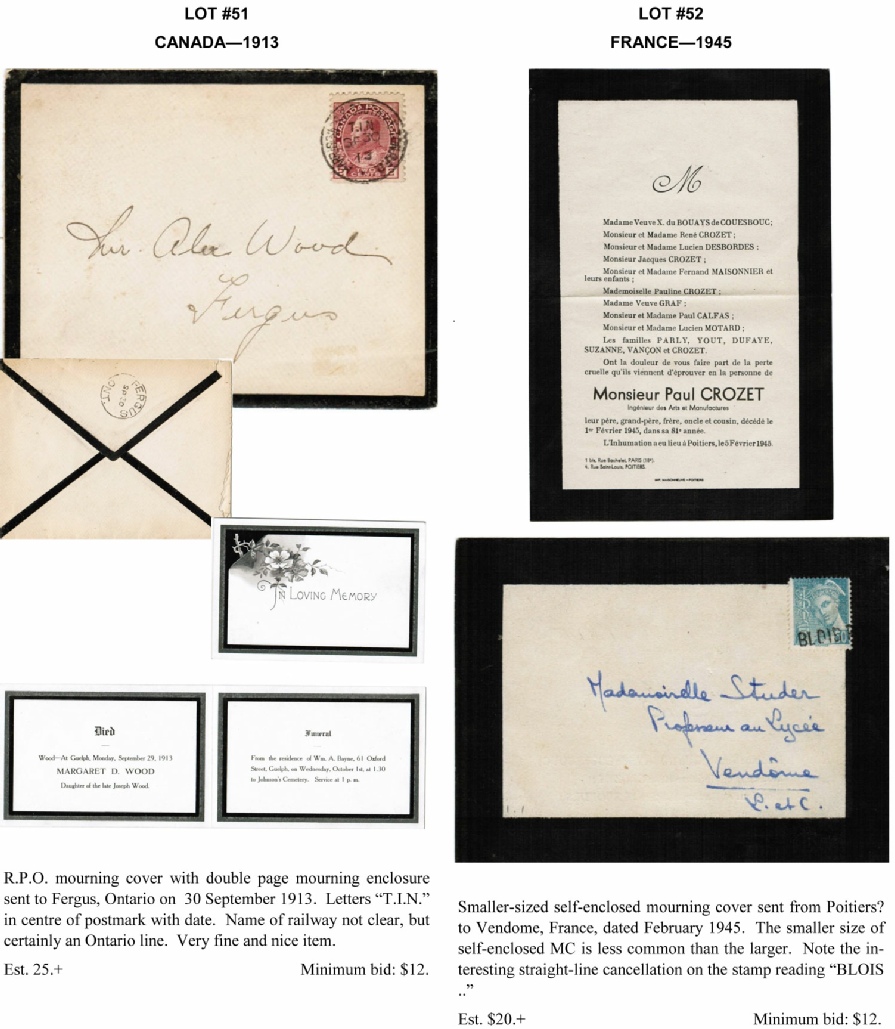 LOT #51
CANADA—1913
CANADA POSTAGE
T.I.N
SP 30
13
Alex Wood
Fergus
FERGUS
SP 30
ONT
IN LOVING MEMORY
Died
Wood—At Guelph, Monday, September 29, 1913
MARGARET D. WOOD
Daughter of the late Joseph Wood.
Funeral
From the residence of Wm. A. Bayne, 61 Oxford
Street, Guelph, on Wednesday, October 1st, at 1.30
to Johnson's Cemetery. Service at 1 p.m.
R.P.O. mourning cover with double page mourning enclosure
sent to Fergus, Ontario on 30 September 1913. Letters “T.I.N.”
in centre of postmark with date. Name of railway not clear, but
certainly an Ontario line. Very fine and nice item.
Est. 25.+ Minimum bid: $12.
LOT #52
FRANCE—1945
M
Madame Veuve X. du BOUAYS de COUESBOUC;
Monsieur et Madame René CROZET ;
Monsieur et Madame Lucien DESBORDES ;
Monsieur Jacques CROZET ;
Monsieur et Madame Fernand MAISONNIER et
leurs enfants ;
Mademoiselle Pauline CROZET ;
Madame Veuve GRAF ;
Monsieur et Madame Paul CALFAS ;
Monsieur et Madame Lucien MOTARD ;
Les familles PARLY, YOUT, DUFAYE,
SUZANNE, VANÇON et CROZET.
Ont la douleur de vous faire part de la perte
cruelle qu'ils viennent d'éprouver en la personne de
Monsieur Paul CROZET
Ingénieur des Arts et Manufactures
leur père, grand-père, frère, oncle et cousin, décédé le
1er Février 1945, dans sa 81e année.
L'Inhumation a eu lieu à Poitiers, le 5 Février 1945.
1 bis, Rue Bachelet, PARIS (18e).
4, Rue Saint-Louis, POITIERS
IMP. MAISONNEUVE - POITIERS
BLOIS
Mademoiselle Studer
Professeur au Lycée
Vendôme
L. et C.
Smaller-sized self-enclosed mourning cover sent from Poitiers?
to Vendome, France, dated February 1945. The smaller size of
self-enclosed MC is less common than the larger. Note the in-
teresting straight-line cancellation on the stamp reading “BLOIS
..”
Est. $20.+ Minimum bid: $12.